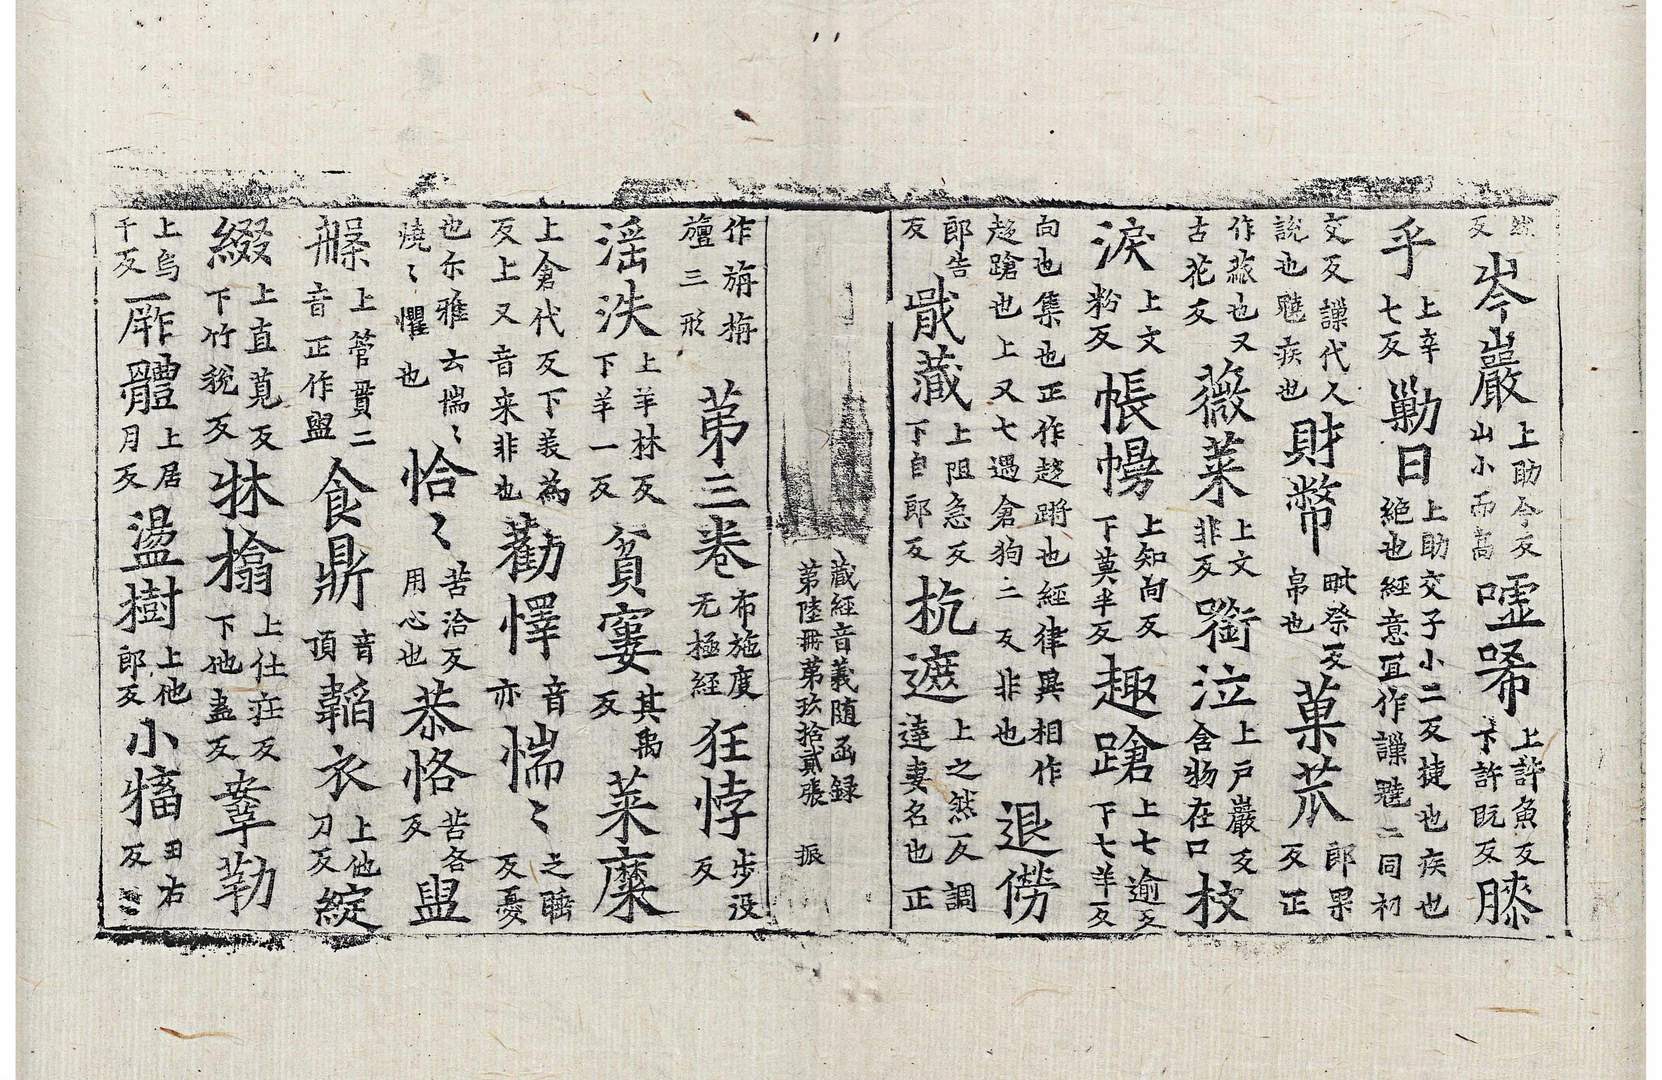 岑巖上助今反下山小而高噓唏上許魚反下許旣反膝
乎上辛七反勦日上助交子小二反捷也疾也絶也經意冝作䜈䟴二同初
交反䜈代人說也䟴疾也財幣毗祭反帛也菓苽郎果反正
作蓏也又古花反薇菜上文非反銜泣上戸巖反含物在口抆
淚上文粉反帳幔上知向反下莫半反趣蹌上七逾反下七羊反
向也集也正作趍蹡也經律異相作趍蹌也上又七遇倉狗二反非也退僗
郎告反戢藏上阻急反下自郎反杭遮上之然反調達妻名也正
藏經音義随函録
第陸冊第玖拾貳張 振
作旃栴䃪三形 第三卷布施度无極經狂悖步没反
滛泆上羊林反下羊一反貧窶其禹反菜糜
上倉代反下美為反上又音来非也勸懌音亦惴〻之睡反憂
也尓雅云惴〻燒〻懼也恰〻苦洽反用心也恭恪苦各反盥
𦨶上管貫二音正作盥食鼎音頂韜衣上他刀反綻
綴上直莧反下竹稅反牀㩉上仕莊反下他盍反鞌勒
上烏千反𠩄體上居月反盪樹上他郎反小牗田右反〻